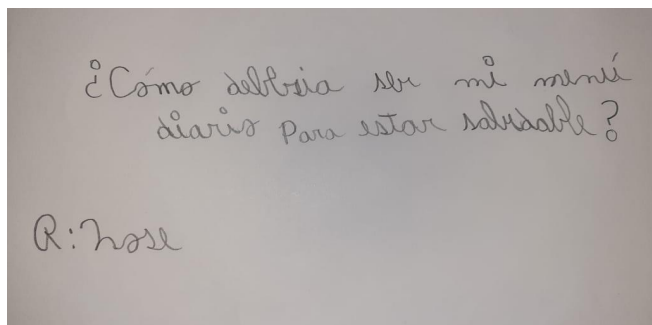 ¿Cómo debbria ser mi menú
diario para estar salusable?
R: nose